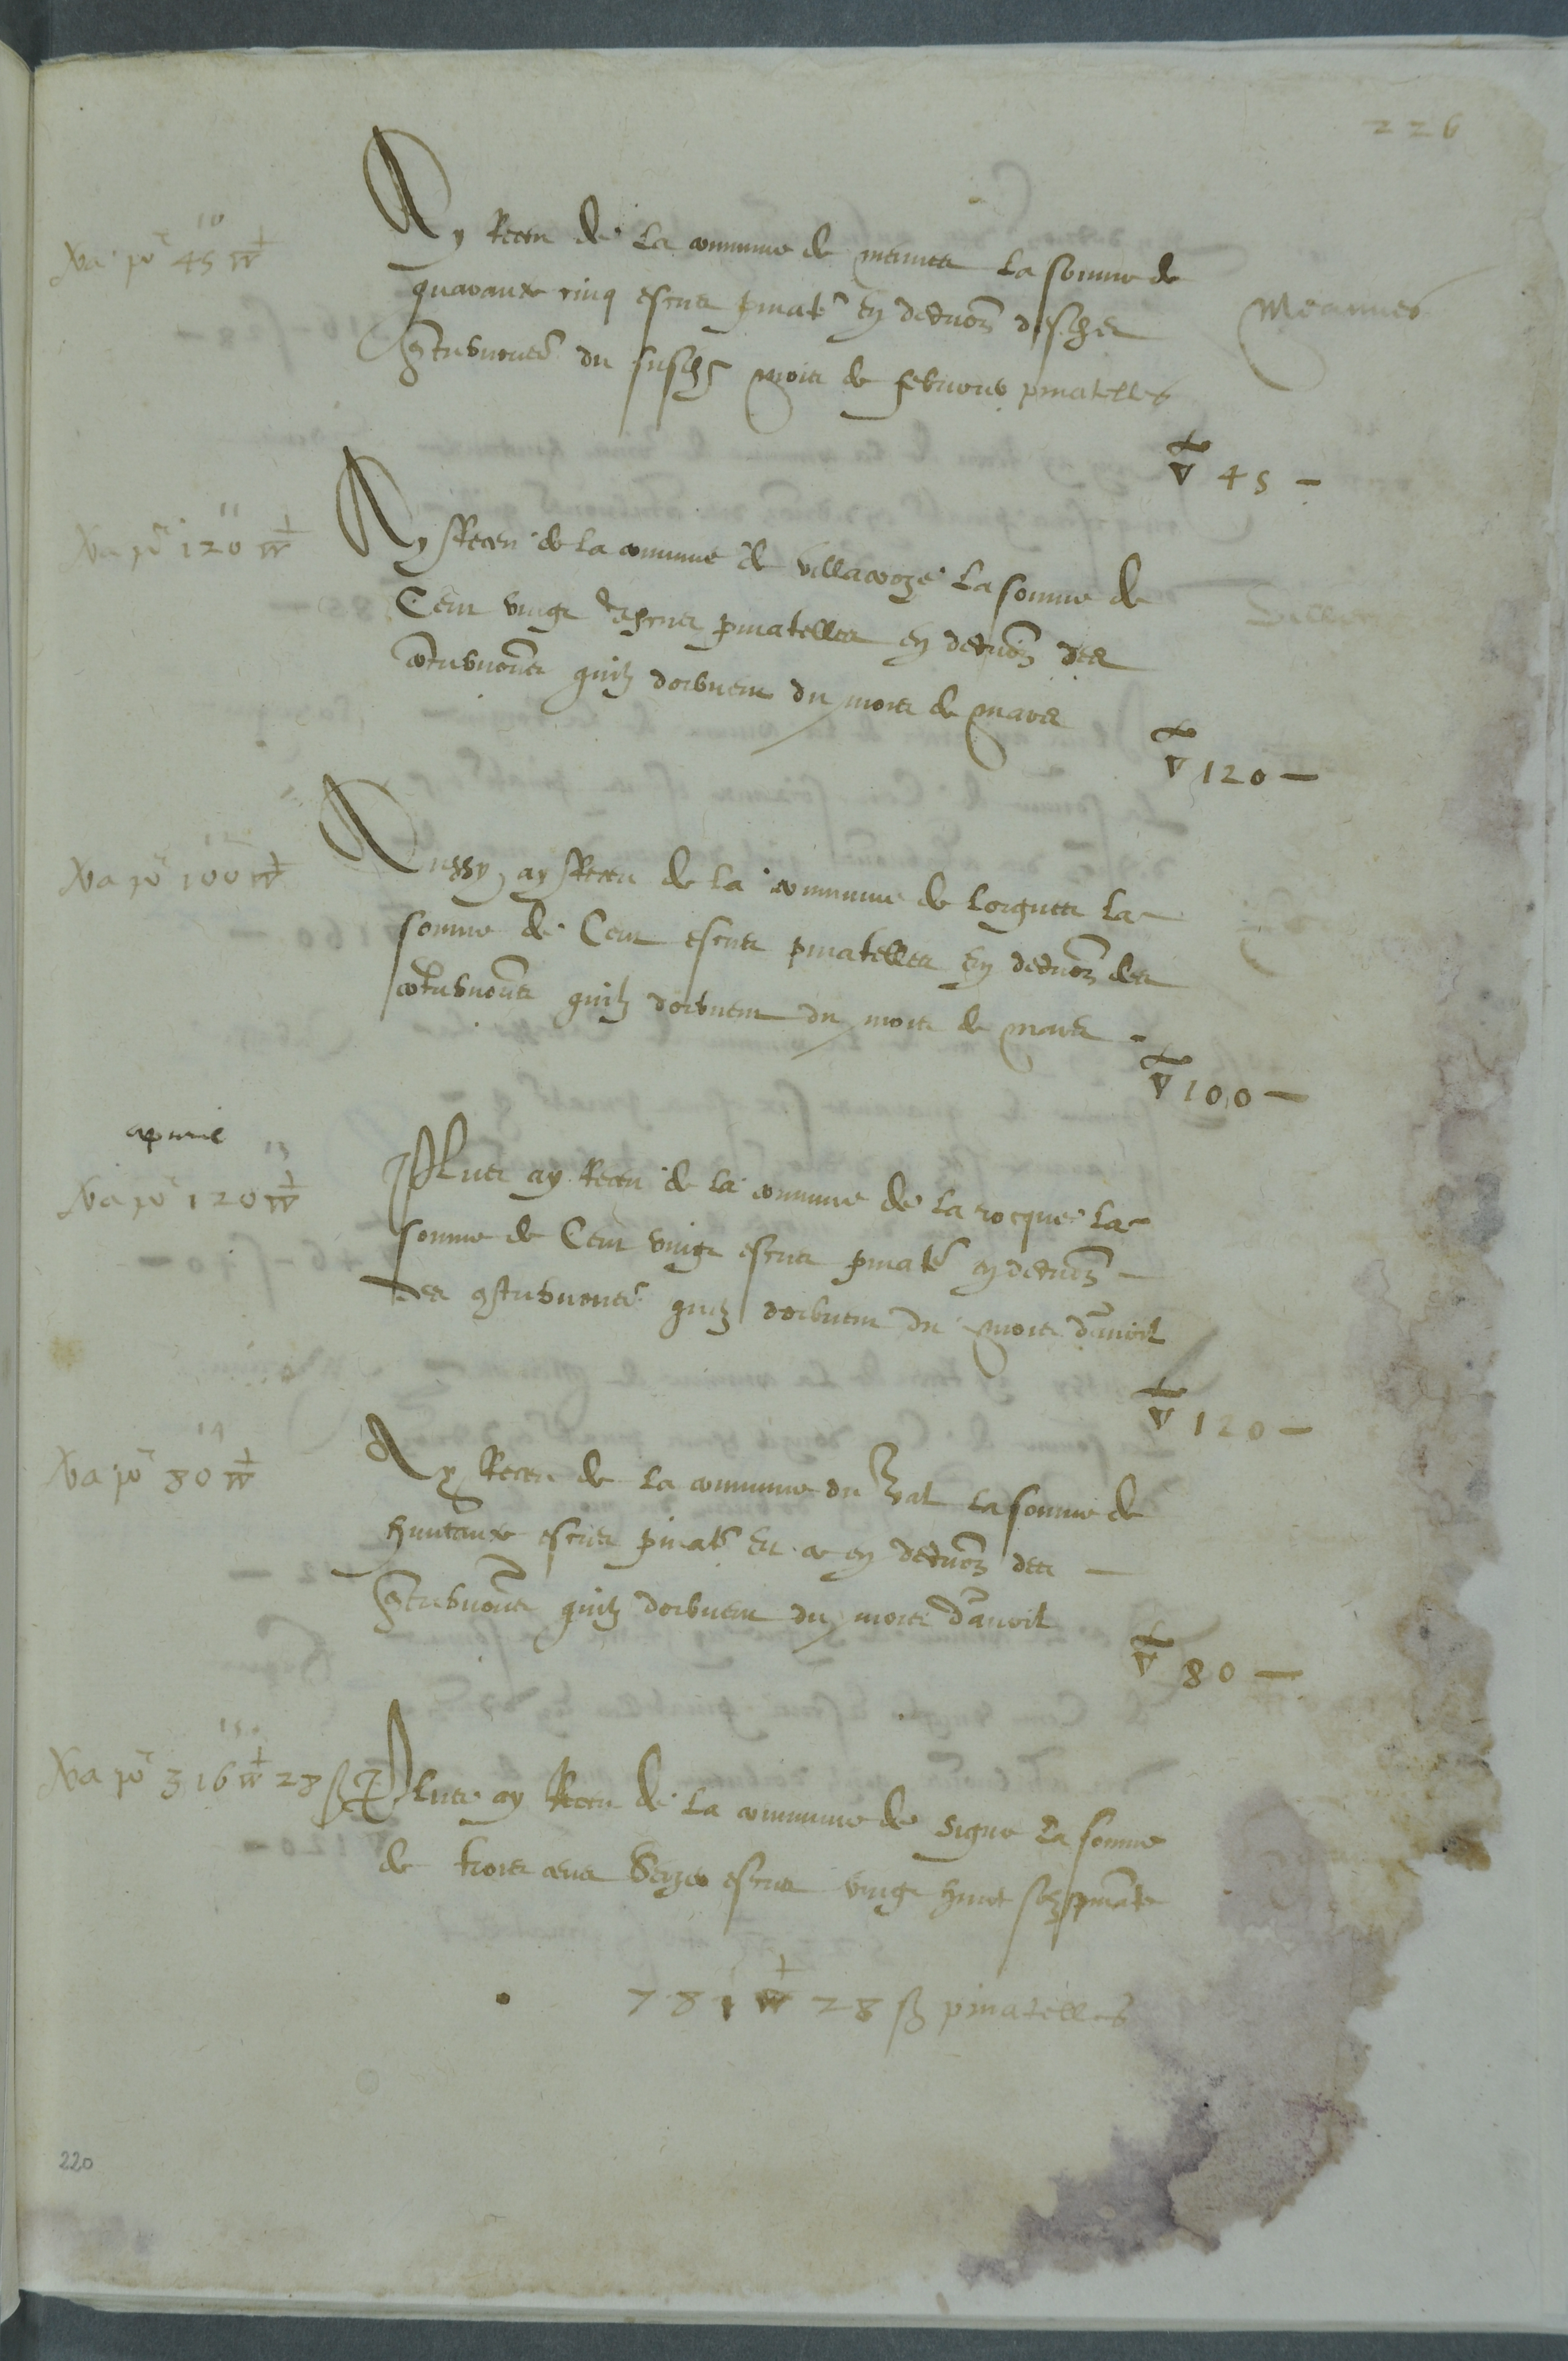 226
10
Va po 45 ▽
Ay Receu de la commune de meunes la somme de
quarante cinq escus pinatˢ en deduction desches
contributions du susdˢ mois de febvrier pinatelles
Meaunes
▽ 45 —
11
Va po 120 ▽
Ay Receu de la commune de villacroze la somme de
Cent vingt escus pinatelles en deduction des
contributions quilz doibvent du mois de mars
▽ 120 —
12
Va po 100 ▽
Aussy ay Receu de la commune de lorgues la
somme de Cent escus pinatelles en deduction des
contributions quilz doibvent du mois de mars
▽ 100 —
apuril
13
Va po 120 ▽
Plus ay Receu de la commune de la rocque la
somme de Cent vingt escus pinatˢ en deduction
des contributions quilz doibvent du mois d'avril
▽ 120 —
14
Va po 80 ▽
Ay Receu de la commune du val la somme de
huitante escus pinatˢ en deduction des
contributions quilz doibvent du mois d'avril
▽ 80 —
15
Va po 316 ▽ 28 ß
Plus ay Receu de la commune de signe la somme
de trois cens Seize escus vingt huict solz pinatˢ
781 ▽ 28 ß pinatelles
220